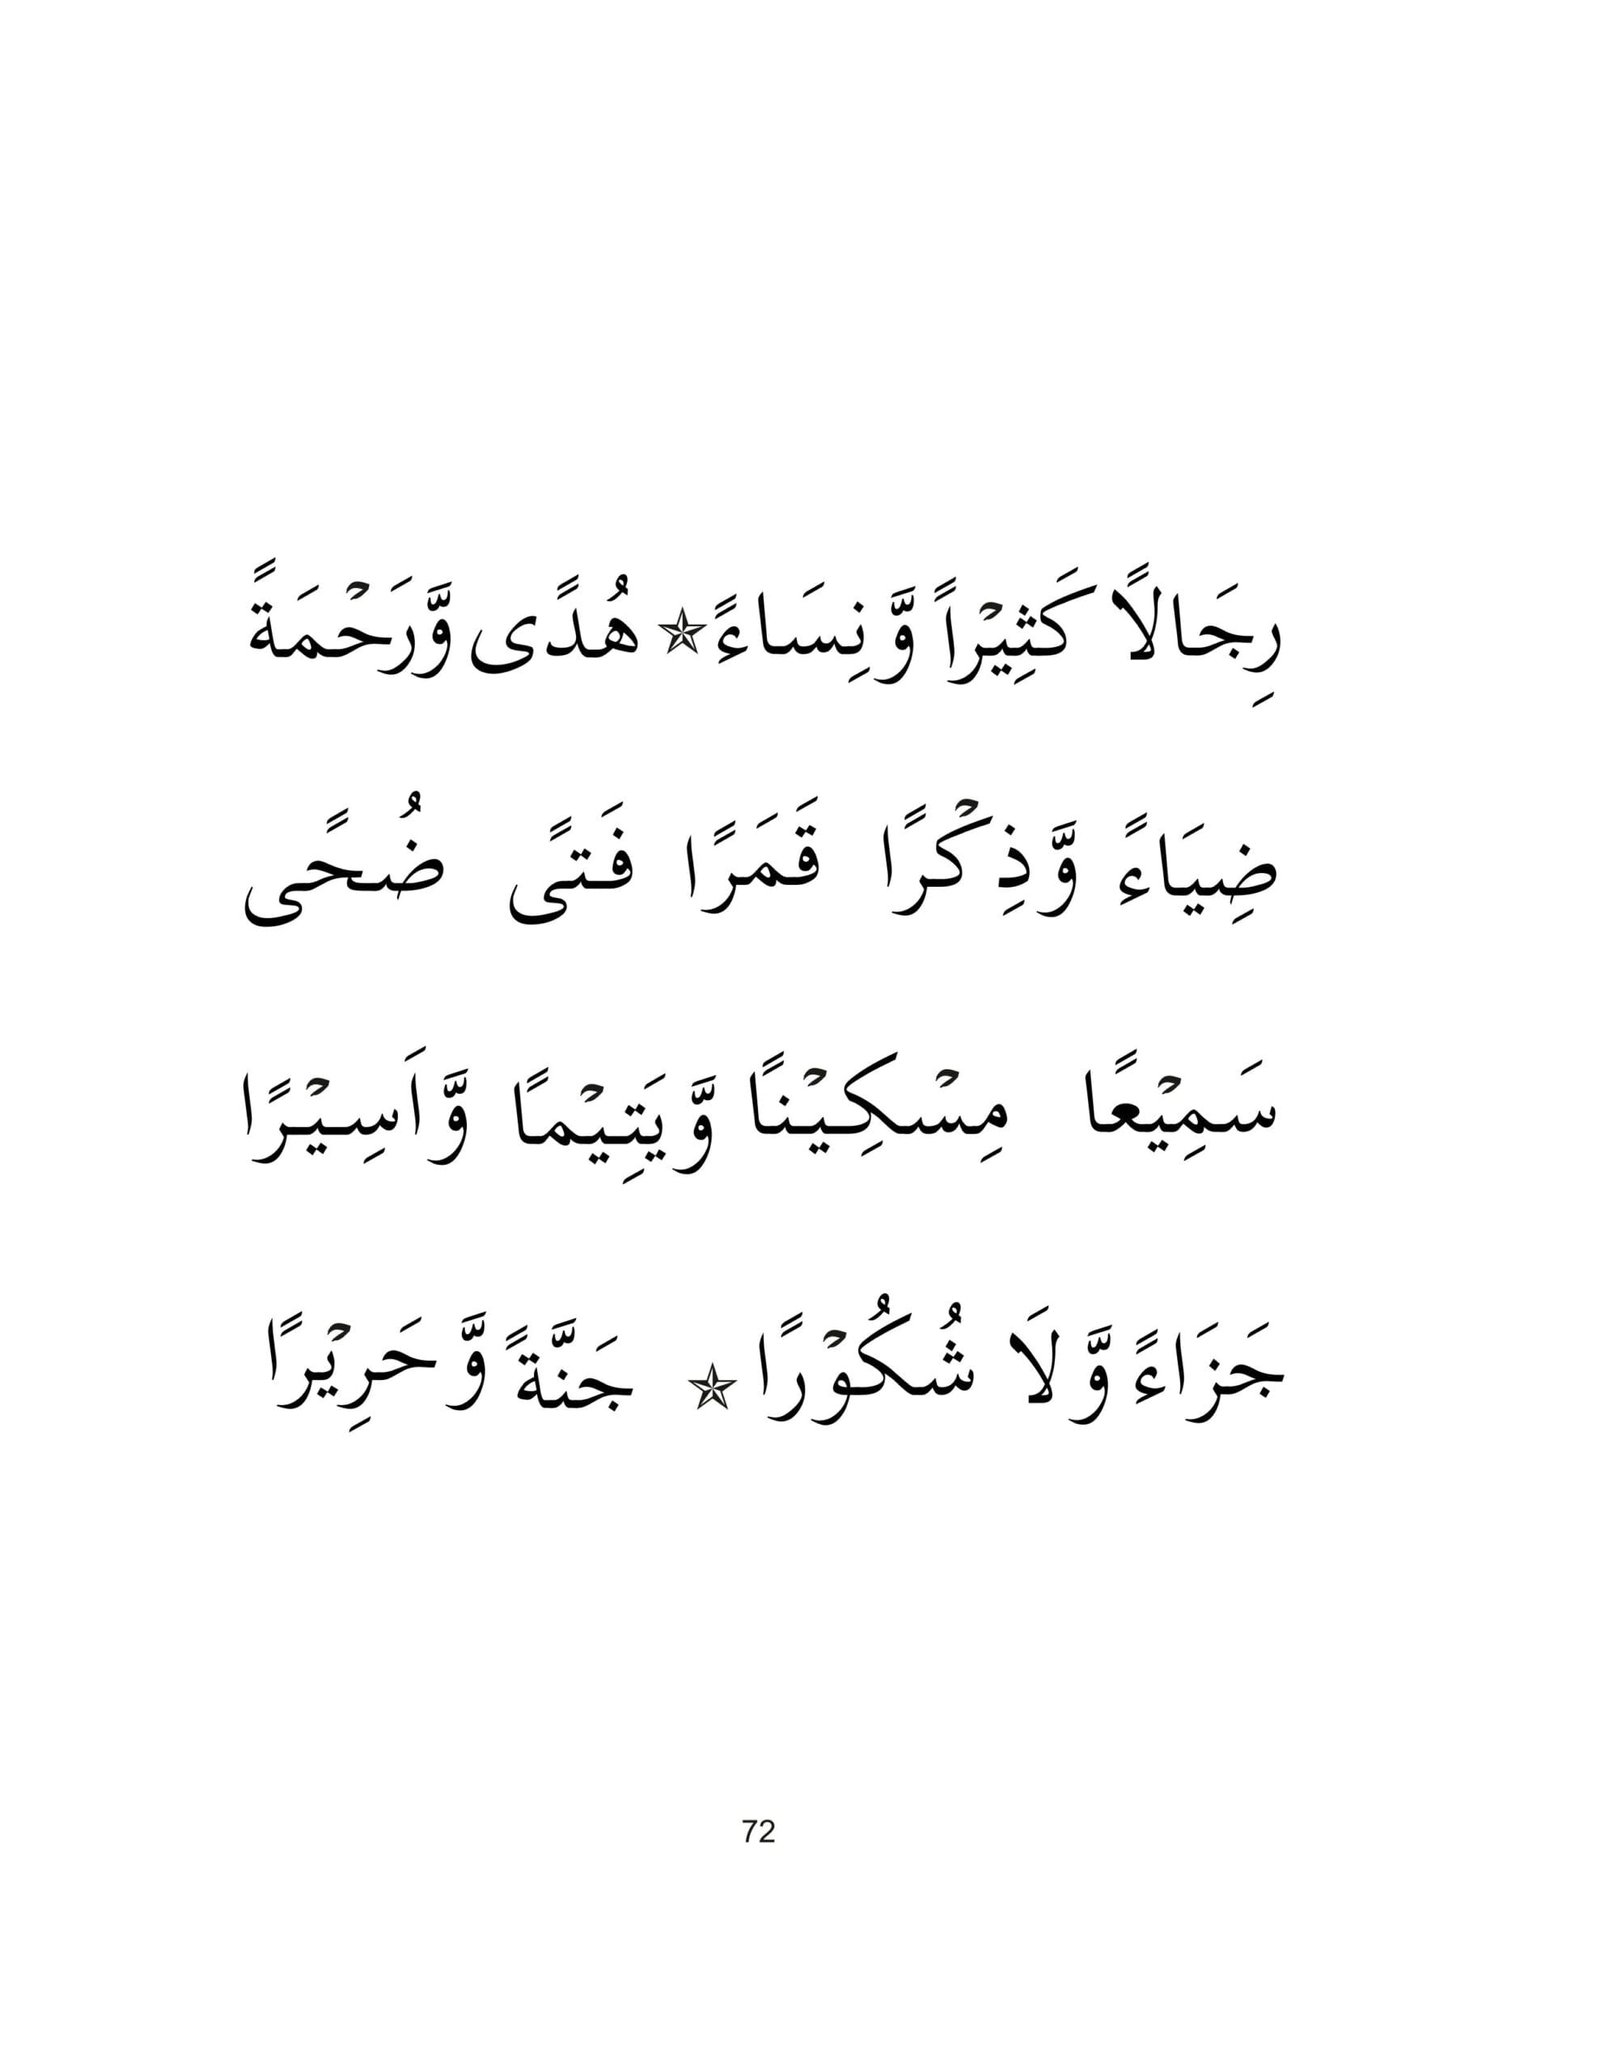 رِجَالاً كَثِيْراً وَّنِسَاءً ☆ هُدًى وَّرَحْمَةً
ضِيَاءً وَّذِكْرًا قَمَرًا فَتىً ضُحًى
سَمِيْعًا مِسْكِيْنًا وَّيَتِيْماً وَّاَسِيْرًا
جَزَاءً وَّلاَ شُكُوْرًا ☆ جَنَّةً وَّ حَرِيْرًا
72